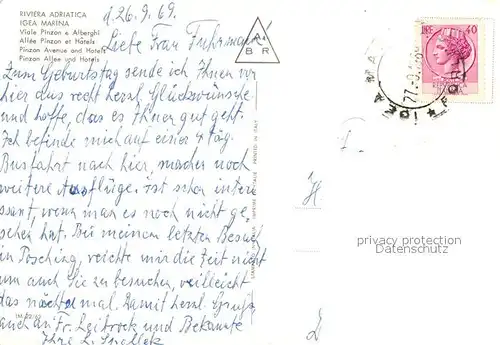 RIVIERA ADRIATICA
IGEA MARINA
Viale Pinzon e Alberghi
Allée Pinzon et Hotels
Pinzon Avenue and Hotels
Pinzon Allee und Hotels
d. 26.9.69.
Liebe Frau Fuhrmann!
Zum Geburtstag sende ich Ihnen von
hier aus recht herzl. Glückwünsche
und hoffe, dass es Ihnen gut geht.
Ich befinde mich auf einer 4 täg.
Busfahrt nach hier, machen noch
weitere Ausflüge. ist schon interes
sant, wenn man es noch nicht ge,
sehen hat. Bei meinem letzten Besuch
in Posching, reichte mir die Zeit nicht
um auch Sie zu besuchen, vielleicht
das nächste mal. Damit herzl. Grüße
auch an Fr. Leibrock und Bekannte
Ihre L.
A
B R
PRINTED IN ITALY
LIRE 40
privacy protection
Datenschutz